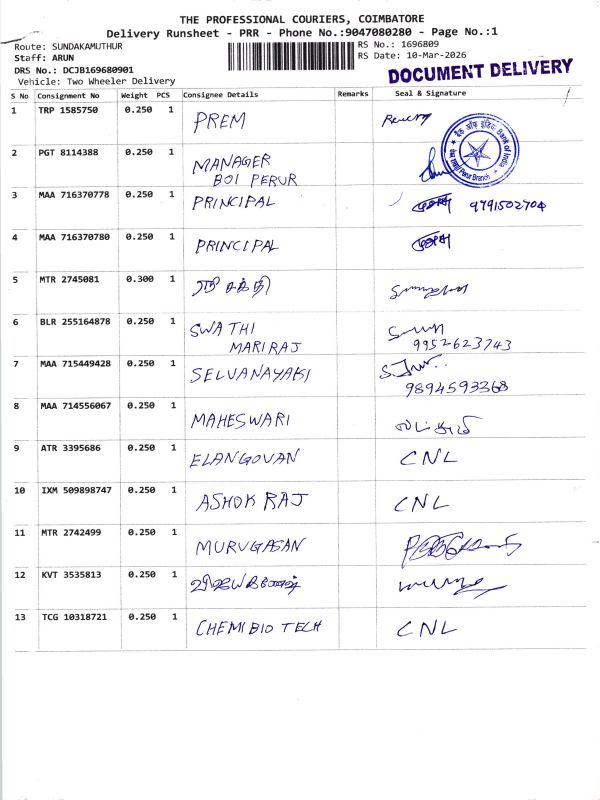 THE PROFESSIONAL COURIERS, COIMBATORE
Delivery Runsheet - PRR - Phone No.:9047080280 - Page No.:1
Route: SUNDAKAMUTHUR
RS No.: 1696809
Staff: ARUN
RS Date: 10-Mar-2026
DRS No.: DCJB169680901
DOCUMENT DELIVERY
Vehicle: Two Wheeler Delivery
S No Consignment No Weight PCS Consignee Details Remarks Seal & Signature
1 TRP 1585750 0.250 1 PREM
2 PGT 8114388 0.250 1 MANAGER
BOI PERUR
बैंक ऑफ इंडिया Bank of India
Perur Branch
3 MAA 716370778 0.250 1 PRINCIPAL 9791502704
4 MAA 716370780 0.250 1 PRINCIPAL
5 MTR 2745081 0.300 1 சக்தி
6 BLR 255164878 0.250 1 SWATHI
MARIRAJ 9952623743
7 MAA 715449428 0.250 1 SELVANAYAKI
9894593368
8 MAA 714556067 0.250 1 MAHESWARI
9 ATR 3395686 0.250 1 ELANGOVAN CNL
10 IXM 509898747 0.250 1 ASHOK RAJ CNL
11 MTR 2742499 0.250 1 MURUGASAN
12 KVT 3535813 0.250 1
13 TCG 10318721 0.250 1 CHEMIBIO TECH CNL